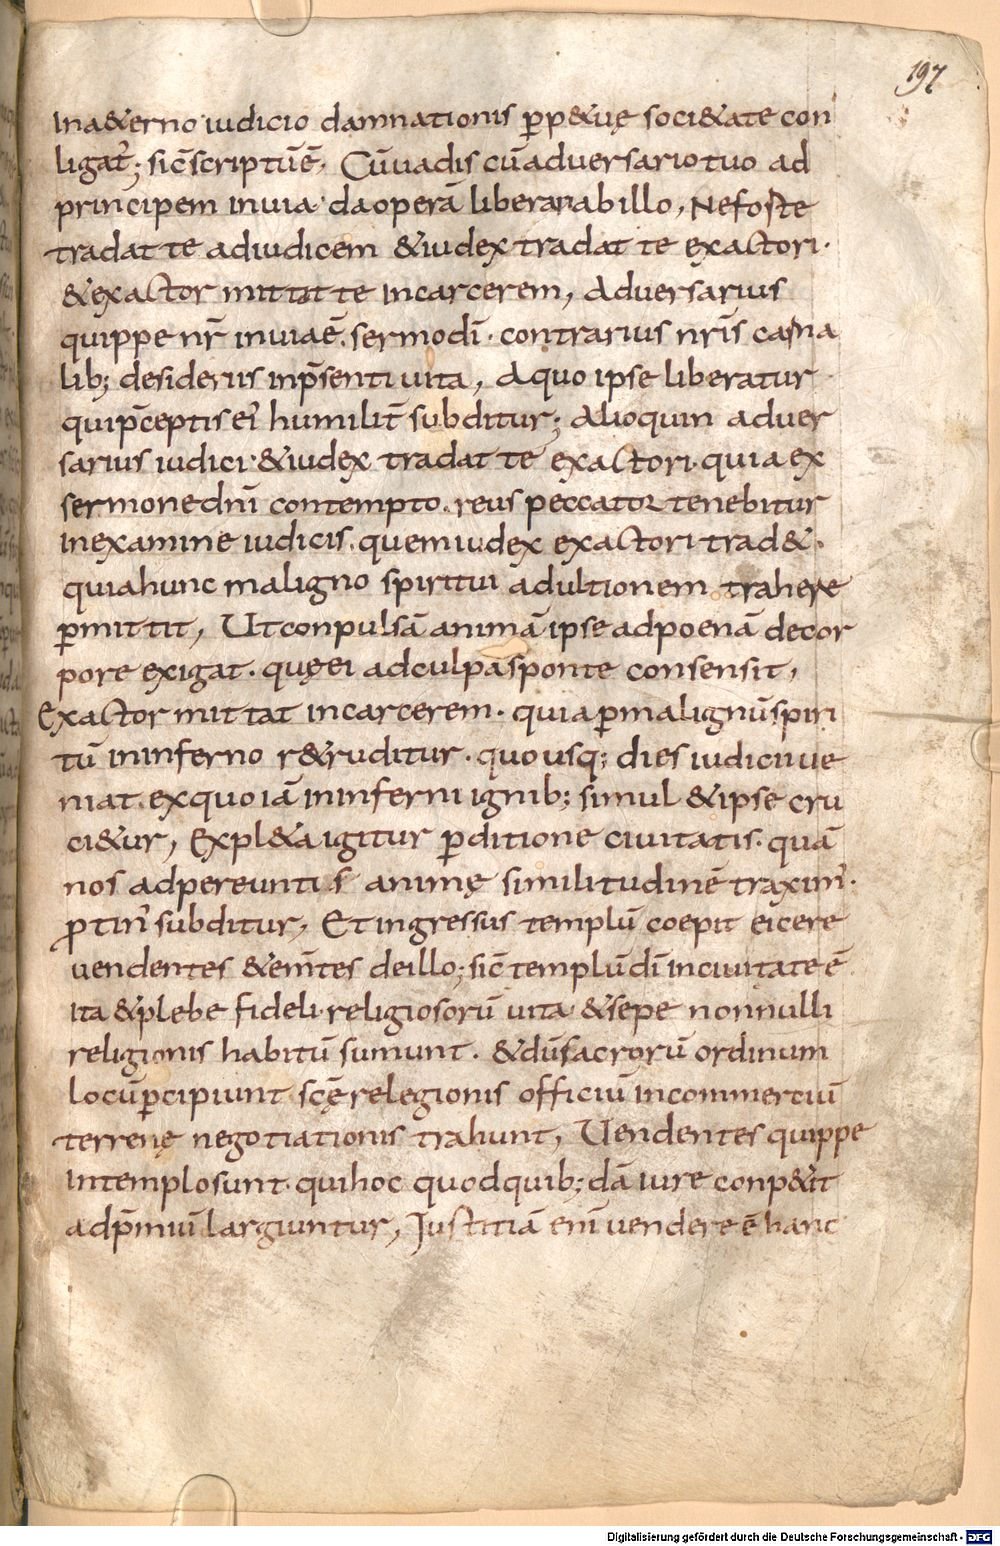 197
Ina&erno iudicio damnationis ꝑp&uę soci&ate con
ligat᷑; sic̄ scriptū ē, Cū uadis cū aduersario tuo ad
principem in uia da operā liberari ab illo, Ne foste
tradat te ad iudicem & iudex tradat te exactori.
& exactor mittat te in carcerem, Aduersarius
quippe nr̄ in uia ē. sermo dī. contrarius nr̄is carna
lib; desideriis in p̄senti uita, A quo ipse liberatur
qui p̄ceptis ei᷑ humilit̄ subditur; Alioquin aduer
sarius iudici & iudex tradat te exactori. quia ex
sermone dn̄i contempto. reus peccator tenebitur
in examine iudicis. quem iudex exactori trad&.
quia hunc maligno spiritui ad ultionem trahere
ꝑmittit, Ut conpulsā animā ipse ad poenā de cor
pore exigat. quę ei ad culpā sponte consensit,
Exactor mittat in carcerem. quia ꝑ malignū spiri
tū in inferno r&ruditur. quousq; dies iudicii ue
niat. ex quo iā in inferni ignib; simul & ipse cru
ci&ur, Expl&a igitur ꝑditione ciuitatis. quā
nos ad pereuntis animę similitudinē traxim᷒.
ꝓtin᷒ subditur, Et ingressus templū coepit eicere
uendentes & em̄tes de illo; sic̄ templū dī in ciuitate ē
ita & plebe fideli religiosorū uita & sepe nonnulli
religionis habitū sumunt. & dū sacrorū ordinum
locū ꝑcipiunt scę̄ relegionis officiū in commerciū
terrenę negotiationis trahunt, Uendentes quippe
in templo sunt. qui hoc quod quib;dā iure conp&it
ad p̄miū largiuntur, Justitiā enī uendere ē hanc
Digitalisierung gefördert durch die Deutsche Forschungsgemeinschaft - DFG